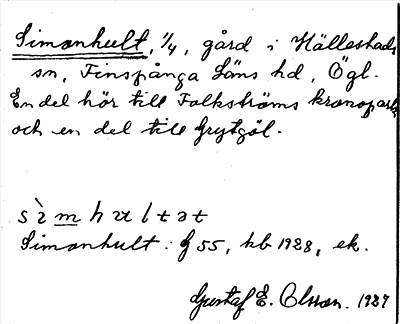 Simonhult, 1/4, gård i Hällestads
sn, Finspånga Läns hd, Ögl.
En del hör till Folkströms kronopark
och en del till Grytgöl.
sìmhʉltət
Simonhult: G 55, kb 1928, ek.
Gustaf E. Olsson. 1927